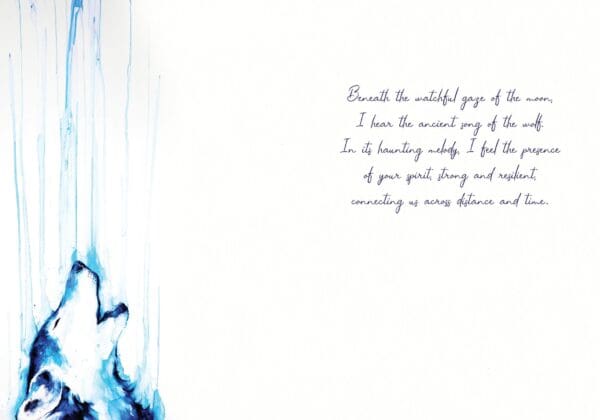 Beneath the watchful gaze of the moon,
I hear the ancient song of the wolf.
In its haunting melody, I feel the presence
of your spirit, strong and resilient,
connecting us across distance and time.